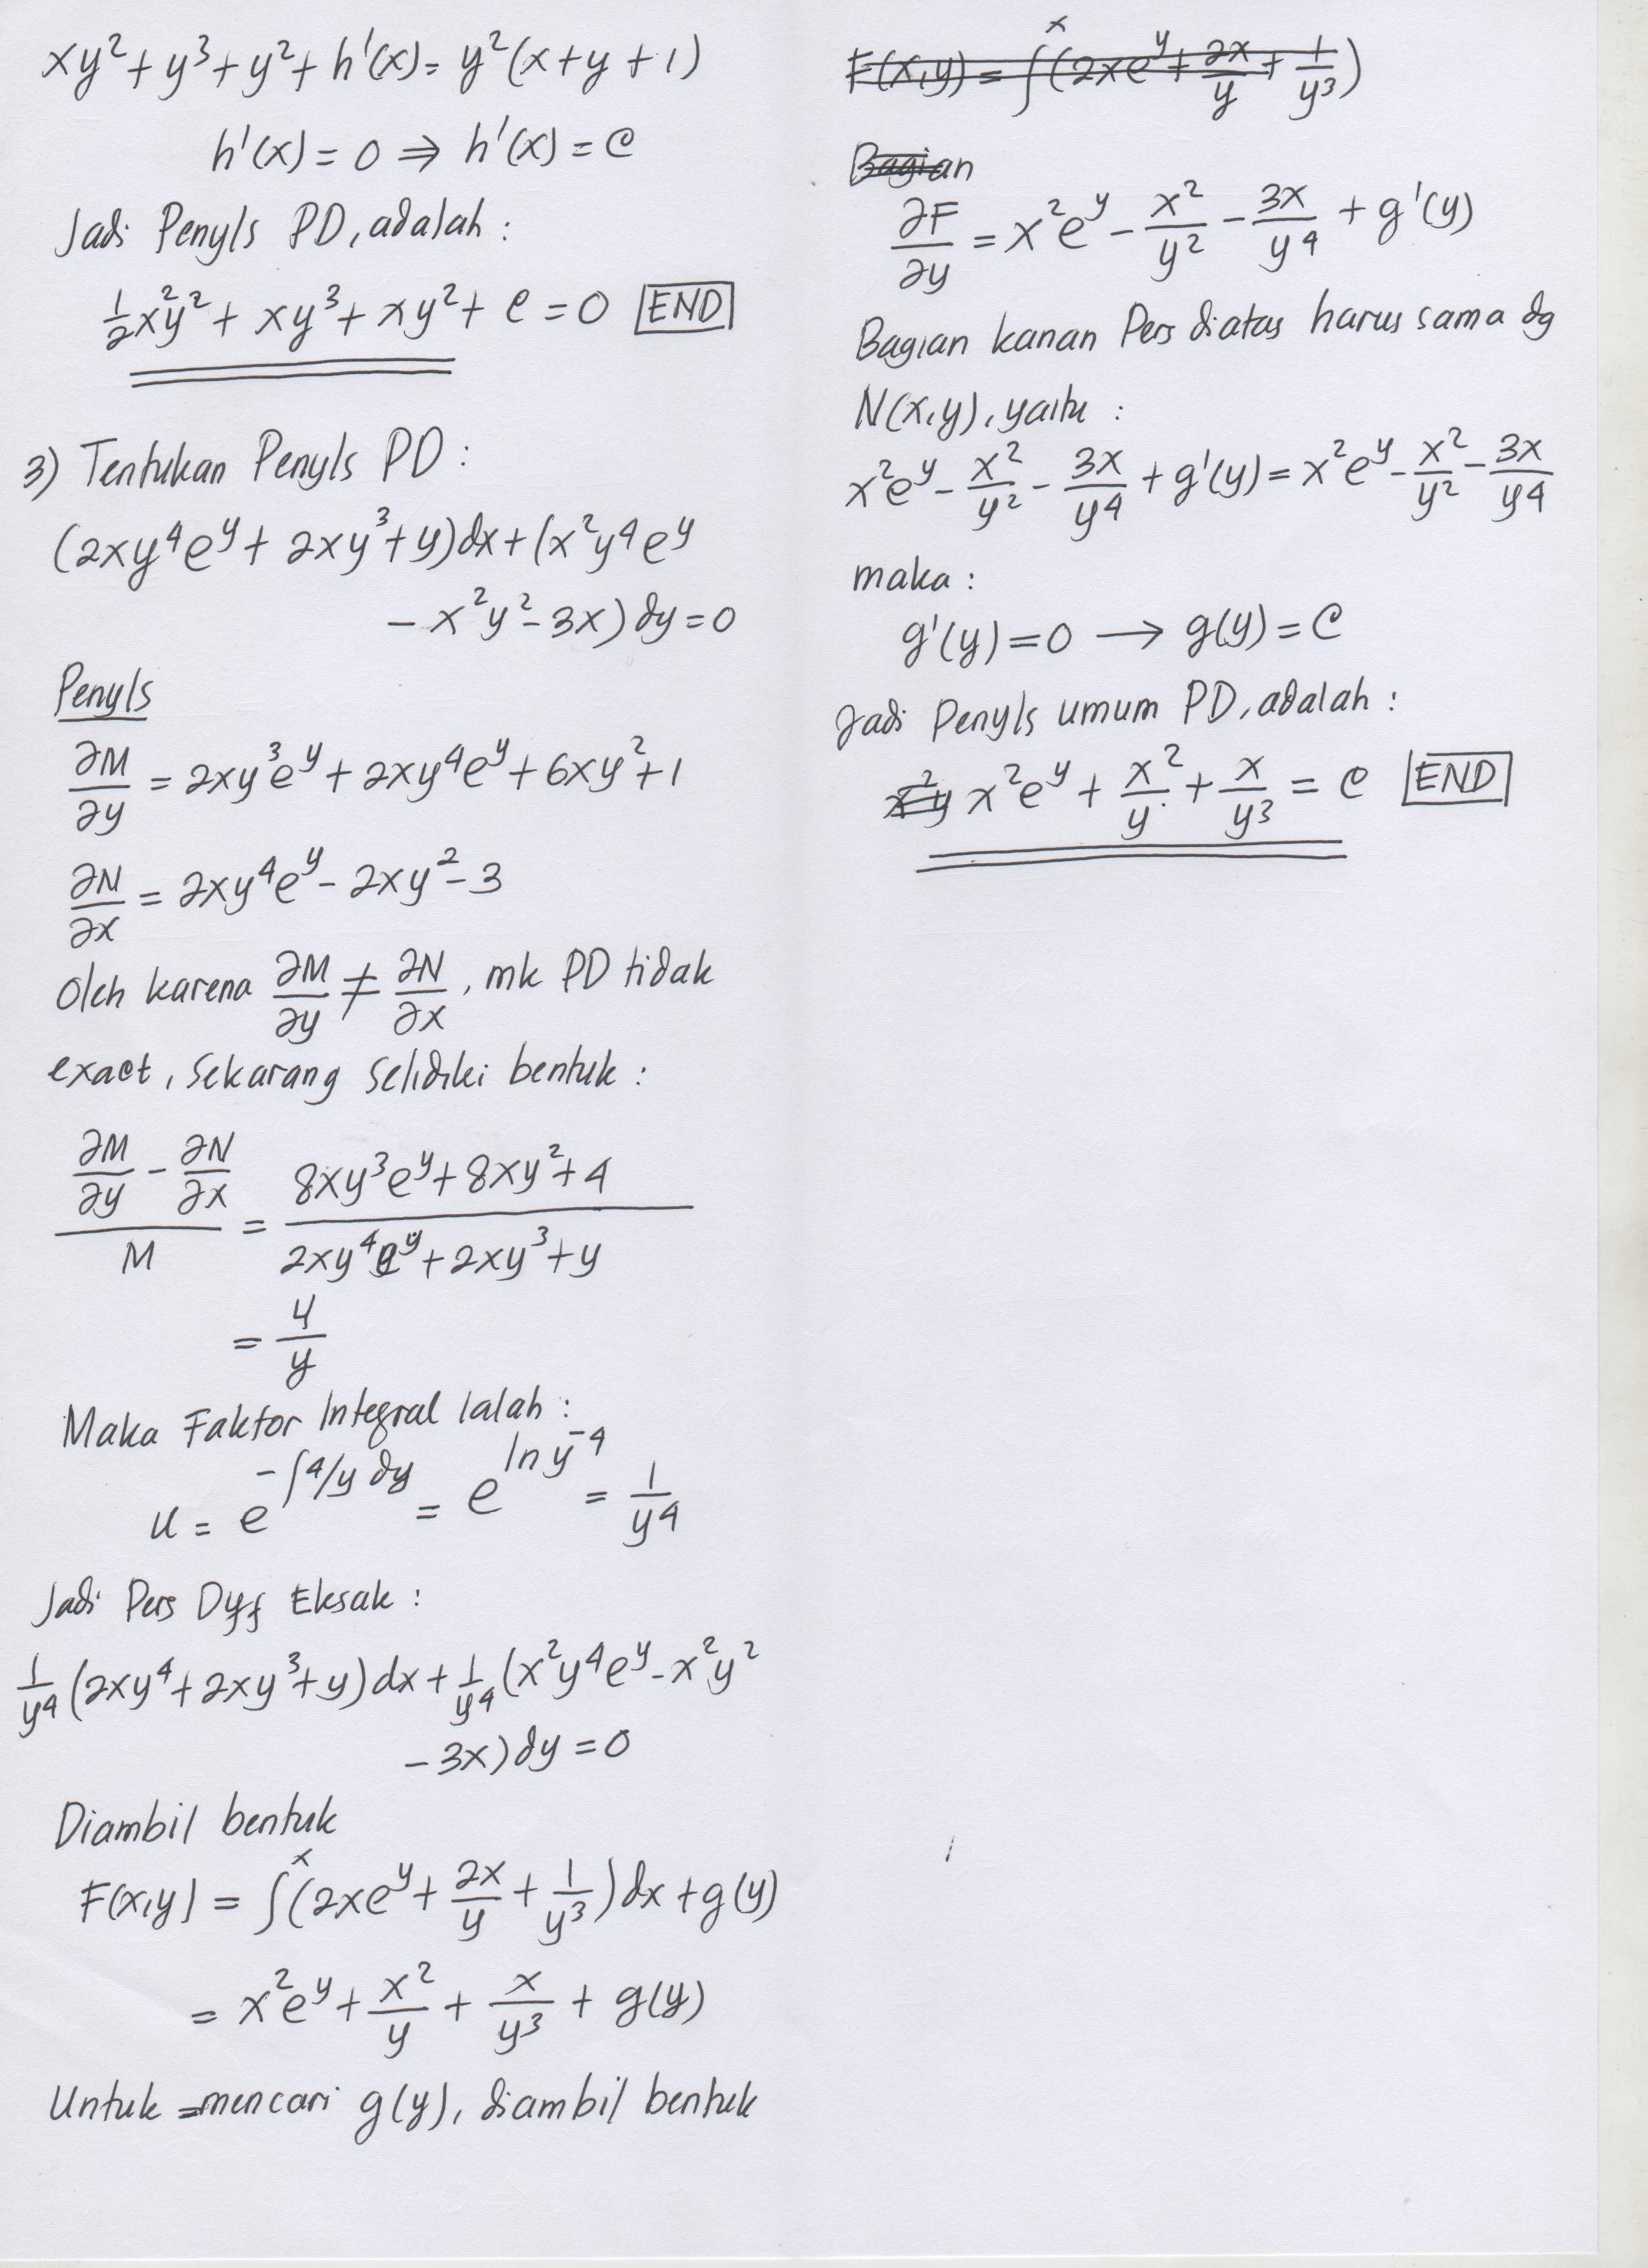 xy²+y³+y²+h'(x)= y²(x+y+1)
h'(x)=0 ⇒ h'(x)=C
Jadi Penyls PD, adalah :
½x²y²+ xy³+ xy²+ c = 0 END
3) Tentukan Penyls PD :
(2xy⁴e^y + 2xy³+y)dx+(x²y⁴e^y
− x²y²−3x)dy=0
Penyls
∂M/∂y = 2xy³e^y + 2xy⁴e^y + 6xy²+1
∂N/∂x = 2xy⁴e^y − 2xy²−3
Oleh karena ∂M/∂y ≠ ∂N/∂x, mk PD tidak
exact, Sekarang selidiki bentuk :
(∂M/∂y − ∂N/∂x)/M = (8xy³e^y + 8xy²+4)/(2xy⁴e^y + 2xy³+y)
= 4/y
Maka Faktor Integral Ialah :
u = e^(−∫4/y dy) = e^(ln y⁻⁴) = 1/y⁴
Jadi Pers Dyf Eksak :
1/y⁴ (2xy⁴+2xy³+y)dx + 1/y⁴ (x²y⁴e^y − x²y²
−3x)dy=0
Diambil bentuk
F(x,y) = ∫^x (2xe^y + 2x/y + 1/y³)dx + g(y)
= x²e^y + x²/y + x/y³ + g(y)
Untuk =mencari g(y), diambil bentuk
F(x,y) = ∫^x (2xe^y + 2x/y + 1/y³)
Bagian
∂F/∂y = x²e^y − x²/y² − 3x/y⁴ + g'(y)
Bagian kanan Pers diatas harus sama dg
N(x,y), yaitu :
x²e^y − x²/y² − 3x/y⁴ + g'(y) = x²e^y − x²/y² − 3x/y⁴
maka :
g'(y)=0 → g(y)=C
Jadi Penyls umum PD, adalah :
x²y x²e^y + x²/y + x/y³ = c END